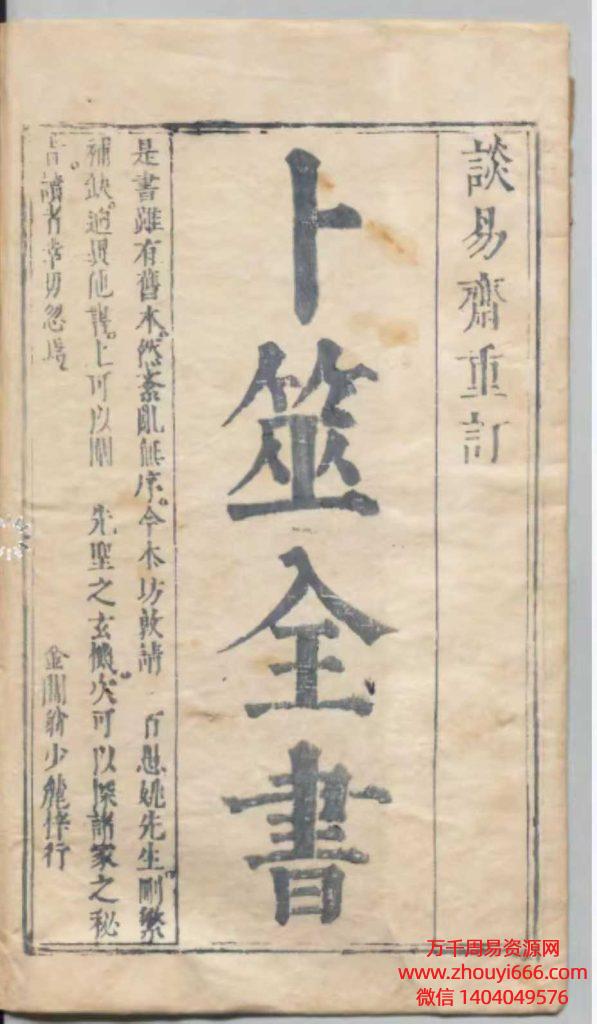 談易齋重訂
卜筮全書
是書雖有舊本然紊亂無序今本坊敦請 百愚姚先生刪繁
補缺迥異他書上可以闡 先聖之玄機次可以探諸家之秘
旨讀者幸毋忽焉
金閶翁少麓梓行
万千周易资源网
www.zhouyi666.com
微信 1404049576